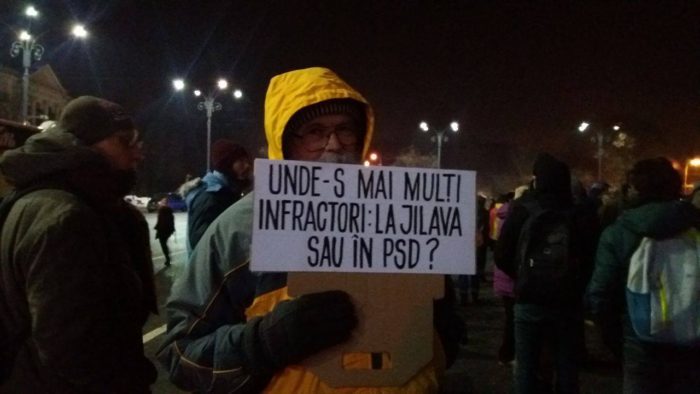 UNDE-S MAI MULTI
INFRACTORI: LA JILAVA
SAU ÎN PSD?